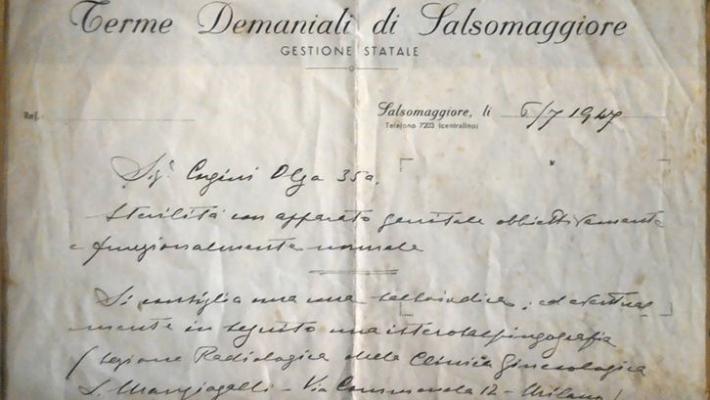 Terme Demaniali di Salsomaggiore
GESTIONE STATALE
Rif.
Salsomaggiore, li 6/7 1947
Telefono 7203 (centralino)
Sig.ª Olga 35 a.
Sterilità con apparato genitale obbiettivamente
e funzionalmente normale
Si consiglia una cura salsoiodica; ed eventual
mente in seguito una isterosalpingografia
(Sezione Radiologica della Clinica Ginecologica
L. Mangiagalli - Via Commenda 12 - Milano)